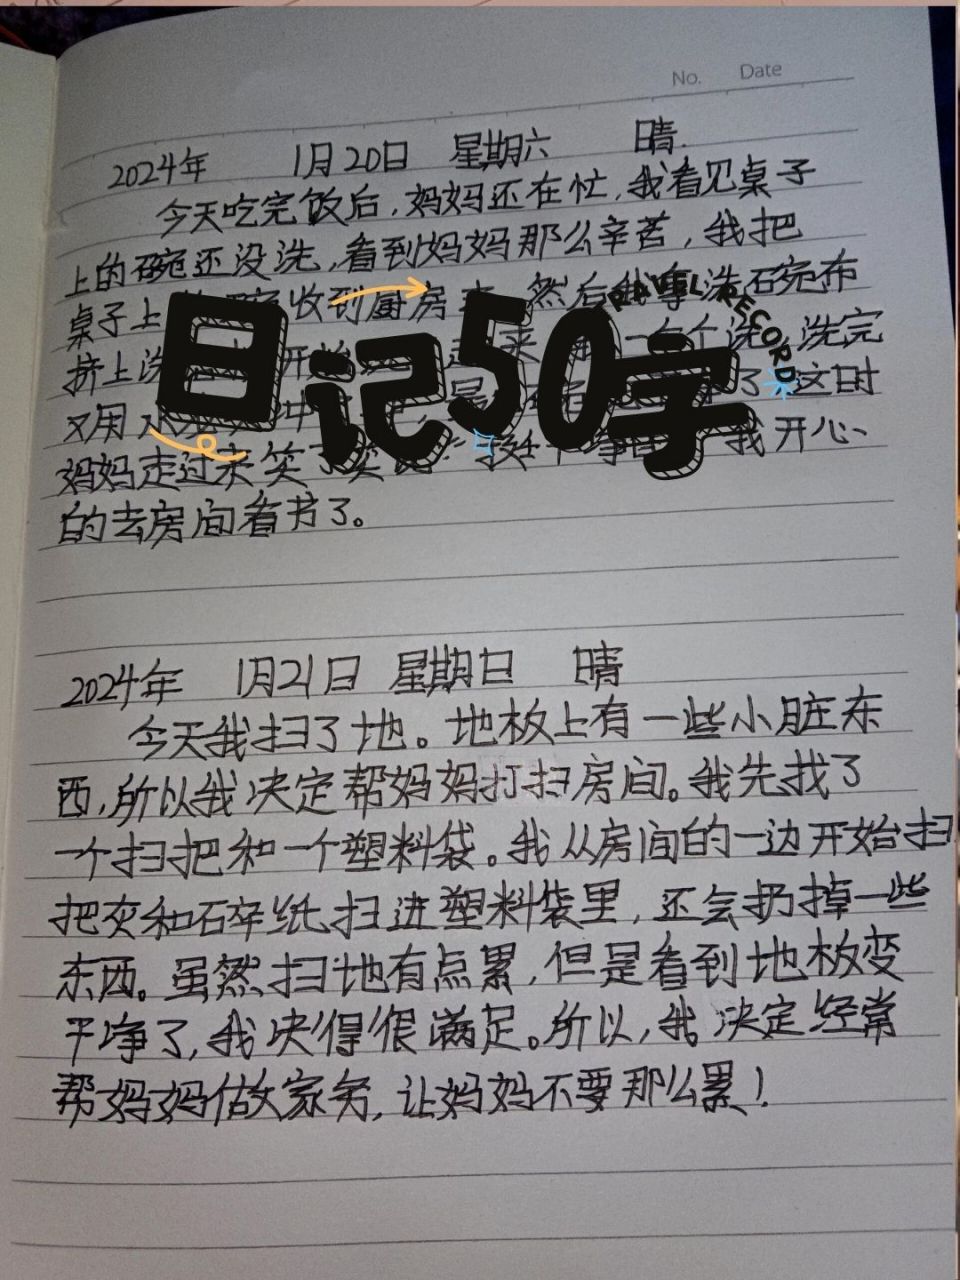 No. Date
2024年 1月20日 星期六 晴.
今天吃完饭后,妈妈还在忙,我看见桌子
上的碗还没洗,看到妈妈那么辛苦,我把
桌子上 收到厨房 然后 洗碗布
TRAVEL RECORD
日记50字
挤上洗 开始 来 一个个洗 洗完
又用水 中 最 了 这时
妈妈走过来笑了笑 我开心、
的去房间看书了。
2024年 1月21日 星期日 晴
今天我扫了地。地板上有一些小脏东
西,所以我决定帮妈妈打扫房间。我先找了
一个扫把和一个塑料袋。我从房间的一边开始扫
把灰和碎纸扫进塑料袋里,还会扔掉一些
东西。虽然扫地有点累,但是看到地板变
干净了,我决得很满足。所以,我决定经常
帮妈妈做家务,让妈妈不要那么累!